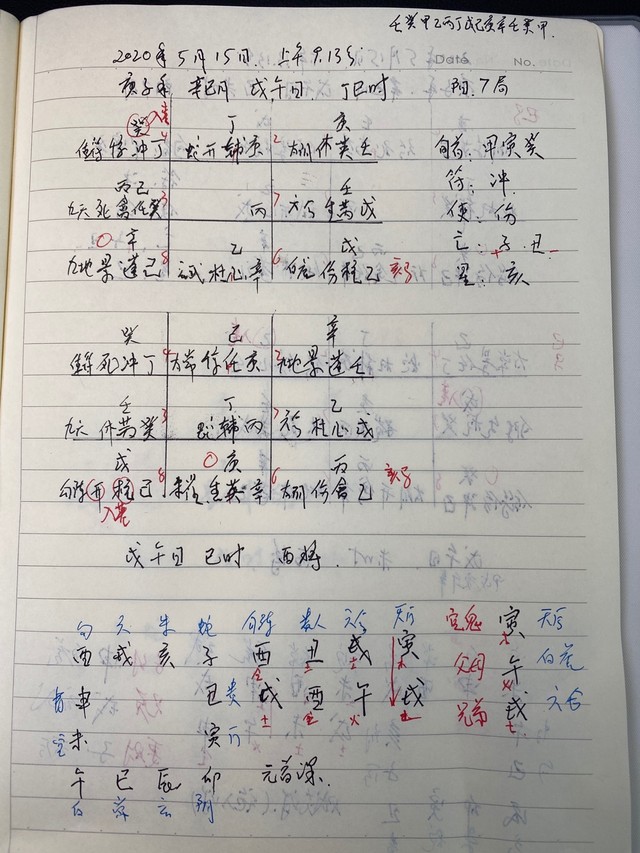 壬癸甲乙丙丁戊己庚辛壬癸甲
2020年5月15日 上午9.13分 Date No.
庚子年 辛巳月 戊午日 丁巳时 阳7局
癸 入墓 丁 庚
4 冲丁 蛇开辅庚 2 休英壬 旬首:甲寅癸
丙己 壬 符:冲
九天死禽任癸 3 丙 7 六合生芮戊 使:伤
辛 乙 戊 亡:子.丑
九地景蓬己 8 柱心辛 6 白虎伤柱乙 星:亥
癸 己 辛
死冲丁 4 太常 任庚 2 九地景蓬壬
壬 丁 乙
九天休芮癸 3 蛇 辅丙 7 六合 柱心戊
戊 庚 丙
勾陈开柱己 8 朱雀生英辛 6 太阴伤禽乙
入墓
戊午日 巳时 酉将.
勾 天 朱 蛇 勾陈 贵人 六合 天后 官鬼 寅 天后
酉 戌 亥 子 酉 丑 戌 寅 父母 午 白虎
青 申 丑 贵 戌 酉 午 戌 兄弟 戌 六合
空 未 寅 后
午 巳 辰 卯 元首课.
白 常 玄 阴